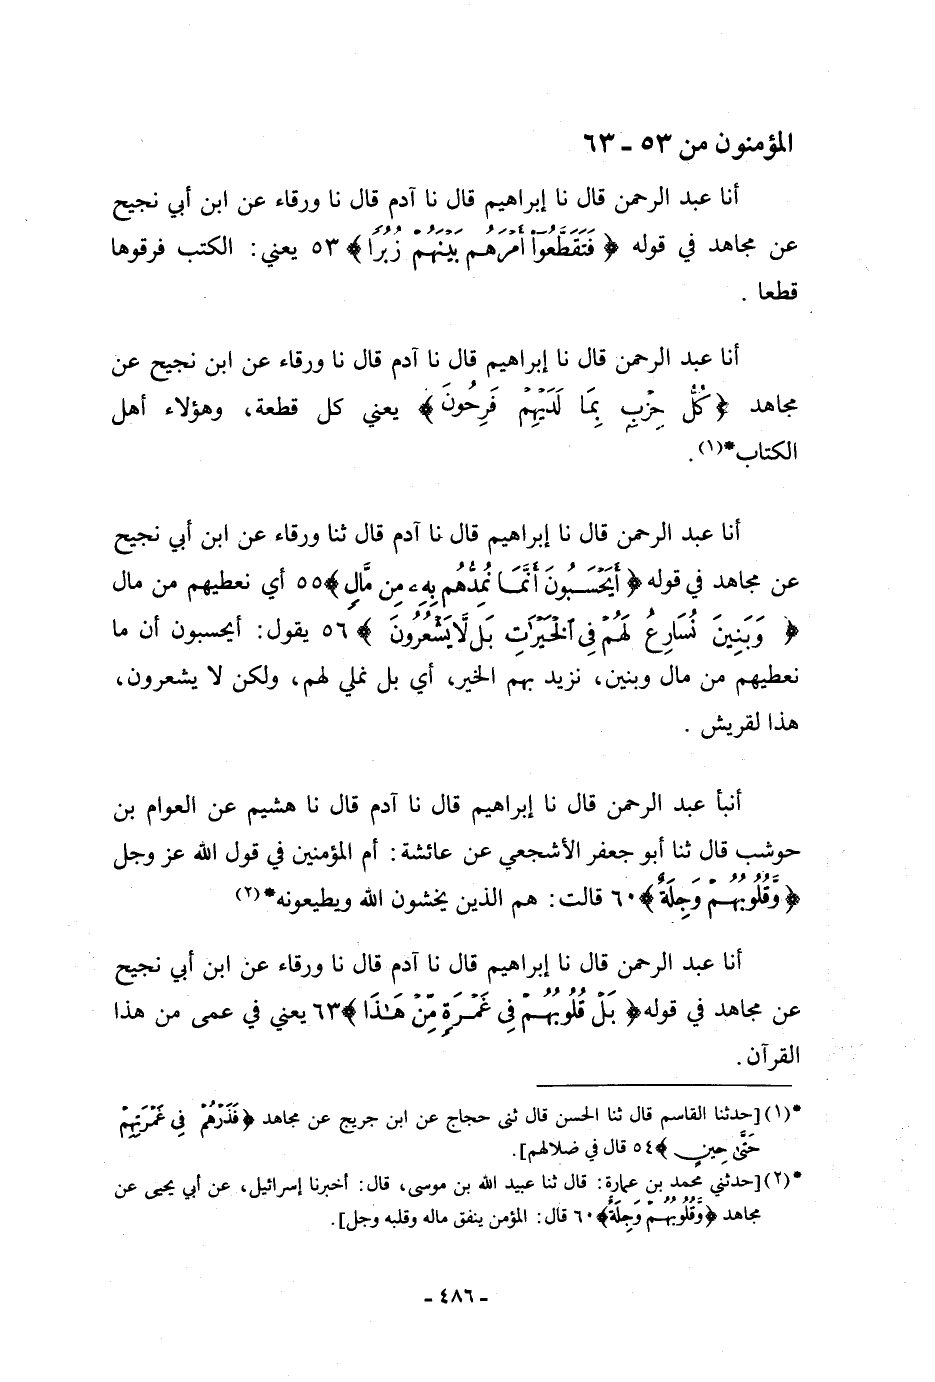 المؤمنون من ٥٣ ـ ٦٣
أنا عبد الرحمن قال نا إبراهيم قال نا آدم قال نا ورقاء عن ابن أبي نجيح
عن مجاهد في قوله ﴿ فَتَقَطَّعُوٓاْ أَمۡرَهُم بَيۡنَهُمۡ زُبُرٗا ﴾ ٥٣ يعني: الكتب فرقوها
قطعا .
أنا عبد الرحمن قال نا إبراهيم قال نا آدم قال نا ورقاء عن ابن نجيح عن
مجاهد ﴿ كُلُّ حِزۡبِۭ بِمَا لَدَيۡهِمۡ فَرِحُونَ ﴾ يعني كل قطعة، وهؤلاء أهل
الكتاب*(١).
أنا عبد الرحمن قال نا إبراهيم قال نا آدم قال ثنا ورقاء عن ابن أبي نجيح
عن مجاهد في قوله ﴿ أَيَحۡسَبُونَ أَنَّمَا نُمِدُّهُم بِهِۦ مِن مَّالٖ ﴾ ٥٥ أي نعطيهم من مال
﴿ وَبَنِينَ نُسَارِعُ لَهُمۡ فِي ٱلۡخَيۡرَٰتِ بَل لَّا يَشۡعُرُونَ ﴾ ٥٦ يقول: أيحسبون أن ما
نعطيهم من مال وبنين، نزيد بهم الخير، أي بل نملي لهم، ولكن لا يشعرون،
هذا لقريش .
أنبأ عبد الرحمن قال نا إبراهيم قال نا آدم قال نا هشيم عن العوام بن
حوشب قال ثنا أبو جعفر الأشجعي عن عائشة: أم المؤمنين في قول الله عز وجل
﴿ وَّقُلُوبُهُمۡ وَجِلَةٌ ﴾ ٦٠ قالت: هم الذين يخشون الله ويطيعونه*(٢)
أنا عبد الرحمن قال نا إبراهيم قال نا آدم قال نا ورقاء عن ابن أبي نجيح
عن مجاهد في قوله ﴿ بَلۡ قُلُوبُهُمۡ فِي غَمۡرَةٖ مِّنۡ هَٰذَا ﴾ ٦٣ يعني في عمى من هذا
القرآن.
*(١) [حدثنا القاسم قال ثنا الحسن قال ثنى حجاج عن ابن جريج عن مجاهد ﴿ فَذَرۡهُمۡ فِي غَمۡرَتِهِمۡ
حَتَّىٰ حِينٍ ﴾ ٥٤ قال في ضلالهم].
*(٢) [حدثني محمد بن عمارة: قال ثنا عبيد الله بن موسى، قال: أخبرنا إسرائيل، عن أبي يحيى عن
مجاهد ﴿ وَّقُلُوبُهُمۡ وَجِلَةٌ ﴾ ٦٠ قال: المؤمن ينفق ماله وقلبه وجل].
ـ ٤٨٦ ـ